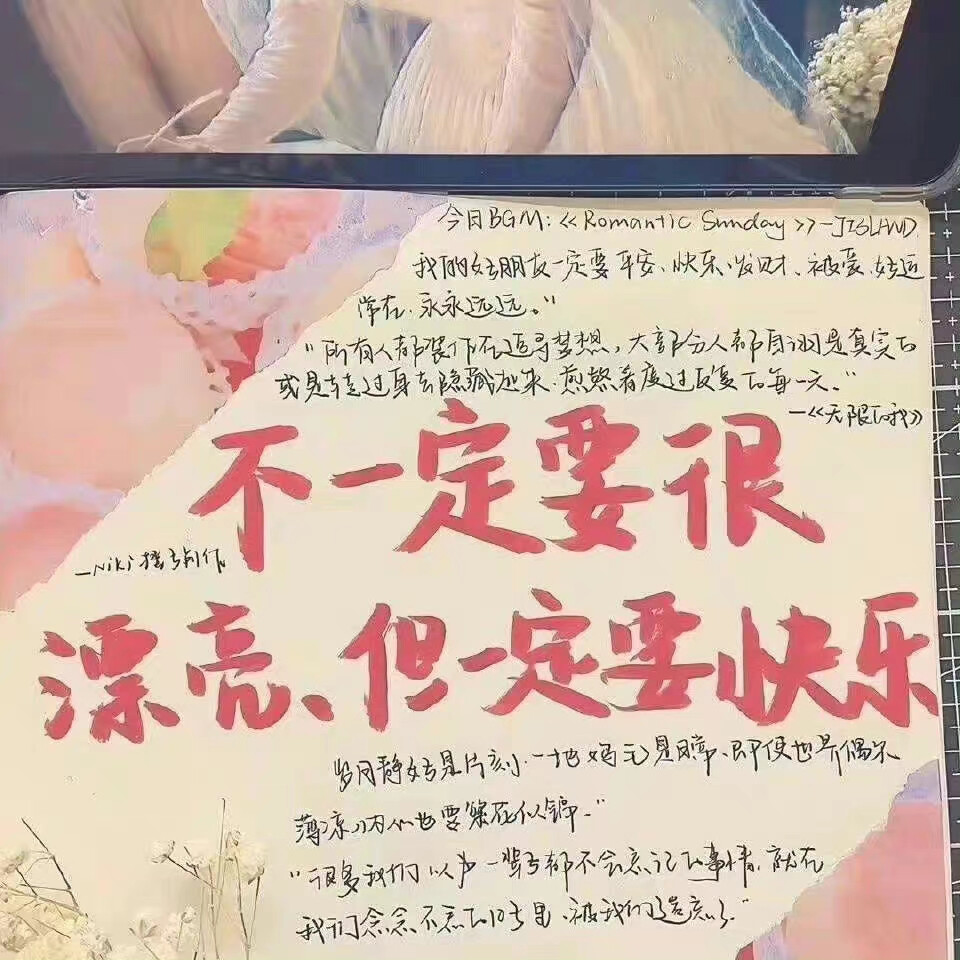 今日BGM:《Romantic Sunday》-JISLAND
我的好朋友一定要平安、快乐、发财、被爱、好运
常在、永永远远。”
“所有人都装作在追寻梦想,大部分人都自诩是真实的
或是转过身去隐藏起来,煎熬着度过反复的每一天。”
—《无限的我》
不一定要很
—Niki
漂亮、但一定要快乐
岁月静好是片刻,一地鸡毛是日常、即便世界偶尔
薄凉,内心也要繁花似锦。”
“很多我们以为一辈子都不会忘记的事情,就在
我们念念不忘的日子里,被我们遗忘了。”